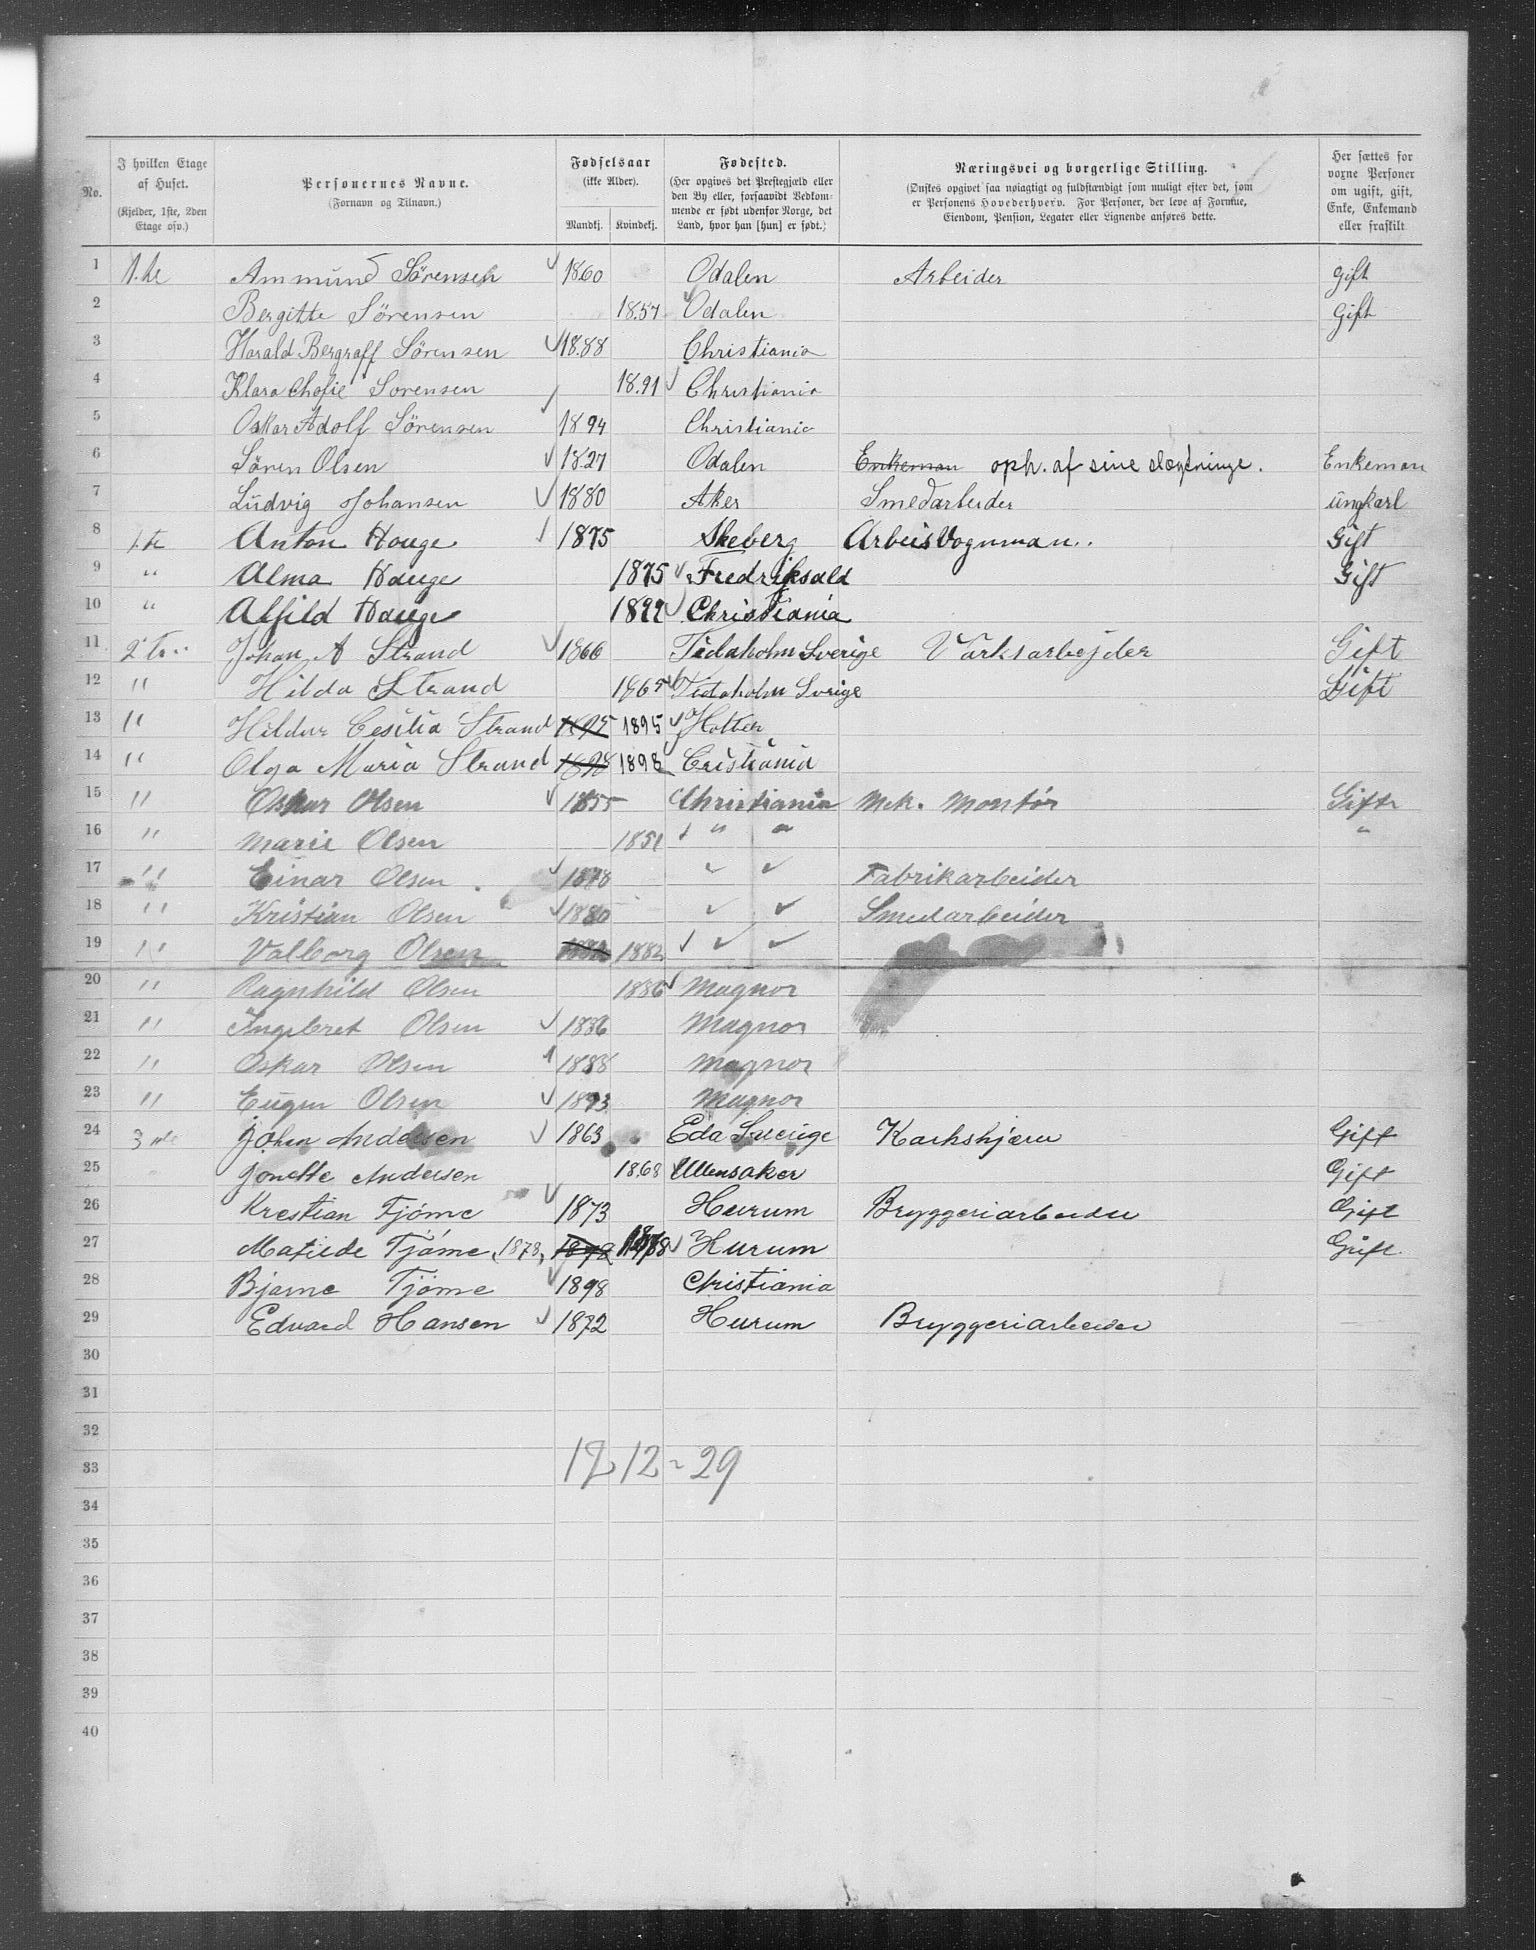 No. | I hvilken Etage af Huset. (Kjelder, 1ste, 2den Etage osv.) | Personernes Navne. (Fornavn og Tilnavn.) | Fødselsaar (ikke Alder). Mandkj. Kvindekj. | Fødested. (Her opgives det Prestegjæld eller den By eller, forsaavidt Vedkommende er født udenfor Norge, det Land, hvor han [hun] er født.) | Næringsvei og borgerlige Stilling. (Ønskes opgivet saa nøiagtigt og fuldstændigt som muligt efter det, som er Personens Hovederhverv. For Personer, der leve af Formue, Eiendom, Pension, Legater eller Lignende anføres dette. | Her sættes for voxne Personer om ugift, gift, Enke, Enkemand eller fraskilt
1 1.te Ammund Sörensen 1860 Odalen Arbeider gift
2 Bergitte Sörensen 1857 Odalen Gift
3 Harald Bergraff Sörensen 18.88 Christiania
4 Klara Chofie Sorensen 18.91 Christiania
5 Oskar Adolf Sörensen 1894 Christiania
6 Sören Olsen 1827 Odalen Enkeman oph. af sine slægtninge. Enkeman
7 Ludvig Johansen 1880 Aker Smedarbeider ungkarl
8 1.te Anton Hauge 1875 Skeberg Arbeisvognman.. Gift
9 " Alma Hauge 1875 Fredriksald Gift
10 " Alfild Hauge Christiania
11 2 Johan A Strand 1866 Tidaholm Sverige Värksarbejder Gift
12 " Hilda Strand 1865 Tidaholm Sverige Gift
13 " Hildur Cesilia Strand 1895 1895
14 " Olga Maria Strand 1898 1898 Cristiania
15 " Oskar Olsen 1855 Christiania Mek. Montör Gift
16 " Marie Olsen 1851 " " "
17 " Einar Olsen 1878 " " Fabrikarbeider
18 " Kristian Olsen 1880 " " Smedarbeider
19 " Valborg Olsen 1882 1882 " "
20 " Ragnhild Olsen 1886 Magnor
21 " Ingebret Olsen 1886 Magnor
22 " Oskar Olsen 1888 Magnor
23 " Eugen Olsen 1893 Magnor
24 3 die Johan Andersen 1863 Eda Sverige Gift
25 " Jonette Andersen 18.68 Ullensaker Gift
26 Krestian Tjöme 1873 Hurum Bryggeriarbeider Gift
27 Matilde Tjöme (1878) 1878 1878 Hurum Gift
28 Bjarne Tjöme 1898 Christiania
29 Edvard Hansen 1872 Hurum Bryggeriarbeider
30
31
32
33 17 12 - 29
34
35
36
37
38
39
40